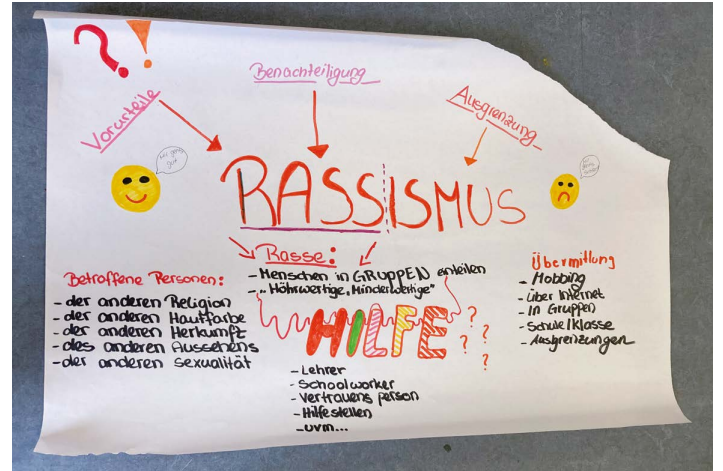 ?!
Benachteiligung
Vorurteile
Ausgrenzung
RASSISMUS
Rasse:
- Menschen in GRUPPEN einteilen
- "Höhrwertige, Minderwertige"
Betroffene Personen:
- der anderen Religion
- der anderen Hautfarbe
- der anderen Herkumfz
- des anderen Aussehens
- der anderen Sexualität
HILFE ????
- Lehrer
- Schoolworker
- Vertrauens person
- Hilfestellen
- uvm...
Übermittlung
- Mobbing
- über Internet
- In Gruppen
- Schule/Klasse
- Ausgrenzungen